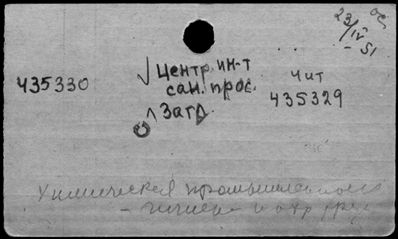 ос
23/IV-51
435330
√ Центр. ин-т
сан. прос.
Чит
435329
Загр
Химическая промышленность
- гигиена и охр. труда